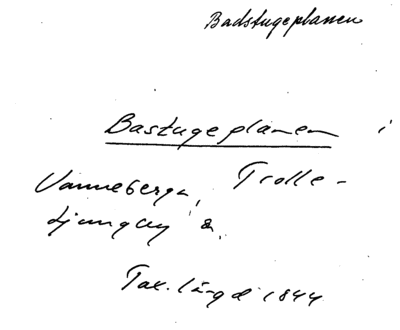 Badstugeplanen
Bastugeplanen i
Vanneberga, Trolle-
Ljungby s.
Tax.längd 1844